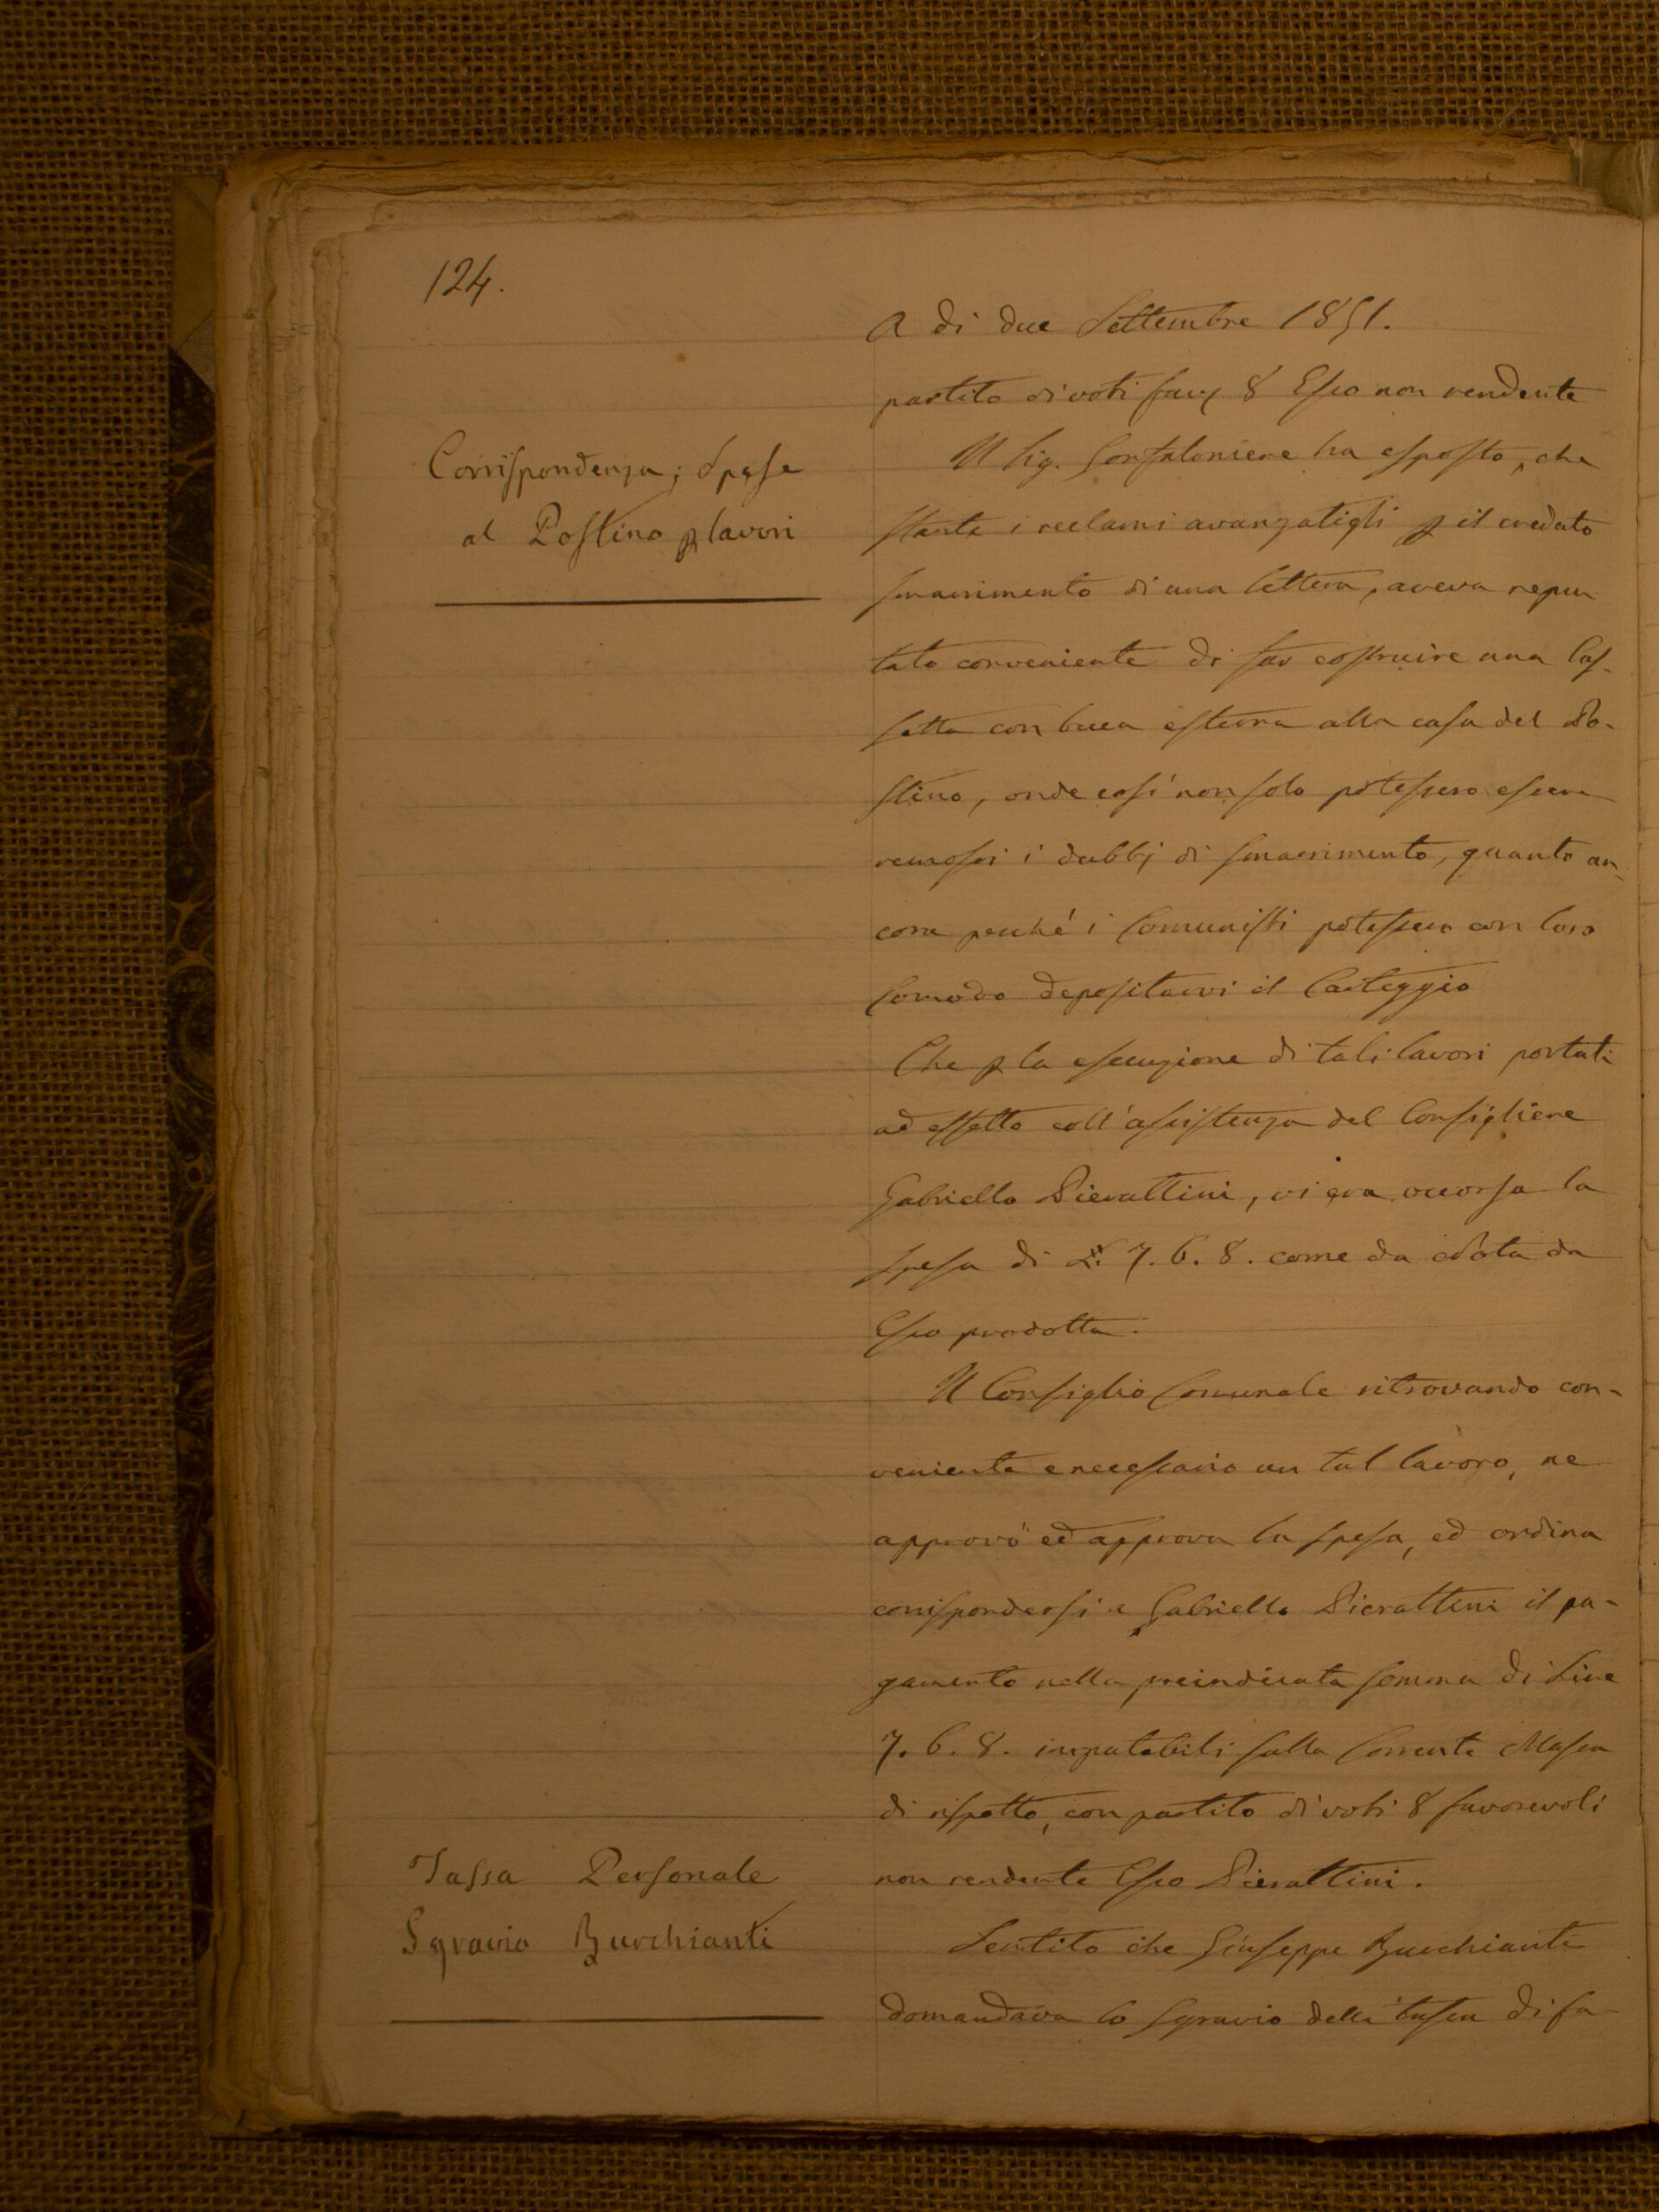 124.
A di due Settembre 1851.
partito di voti fav 8 Esso non rendente
Corrispondenza; Spese
al Postino p lavori
Il Sig. Gonfaloniere ha esposto, che
stante i reclami avanzatigli p il creduto
smarrimento di una lettera, aveva repu
tato conveniente di far costruire una Cas-
setta con buca esterna alla casa del Po-
stino, onde così non solo potessero essere
remossi i dubbj di smarrimento, quanto an-
cora perché i Comunisti potessero con loro
Comodo depositarvi il Carteggio
Che p la esecuzione di tali lavori portati
ad effetto coll'assistenza del Consigliere
Gabriello Pierattini, vi era occorsa la
spesa di £. 7. 6. 8. come da Nota da
Esso prodotta.
Il Consiglio Comunale ritrovando con-
veniente e necessario un tal lavoro, ne
approvò ed approva la spesa, ed ordina
corrispondersi a Gabriello Pierattini il pa-
gamento nella preindicata somma di Lire
7. 6. 8. imputabili sulla Corrente Massa
di rispetto, con partito di voti 8 favorevoli
non rendente Esso Pierattini.
Tassa Personale
Sgravio Burchianti
Sentito che Giuseppe Burchianti
domandava lo sgravio della tassa di fa-